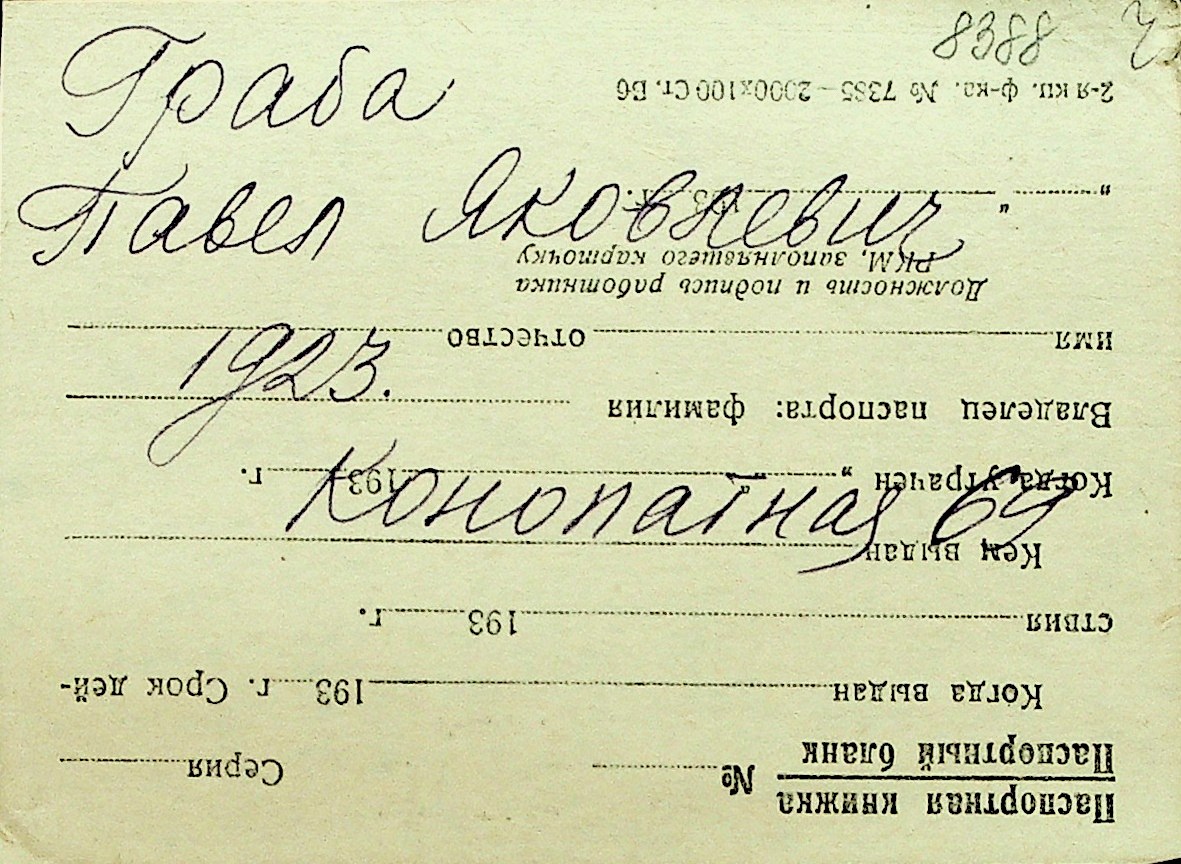 8388
Граба
Павел Яковлевич
1923.
Конопатная 69
Паспортная книжка
Паспортный бланк № Серия
Когда выдан 193 г. Срок дей-
ствия 193 г.
Кем выдан
Когда утрачен „ “ 193 г.
Владелец паспорта: фамилия
имя отчество
Должность и подпись работника
РКМ, заполнявшего карточку
„ “ 193 г.
2-я кн. ф-ка. № 7385—2000х100 Ст. Б6